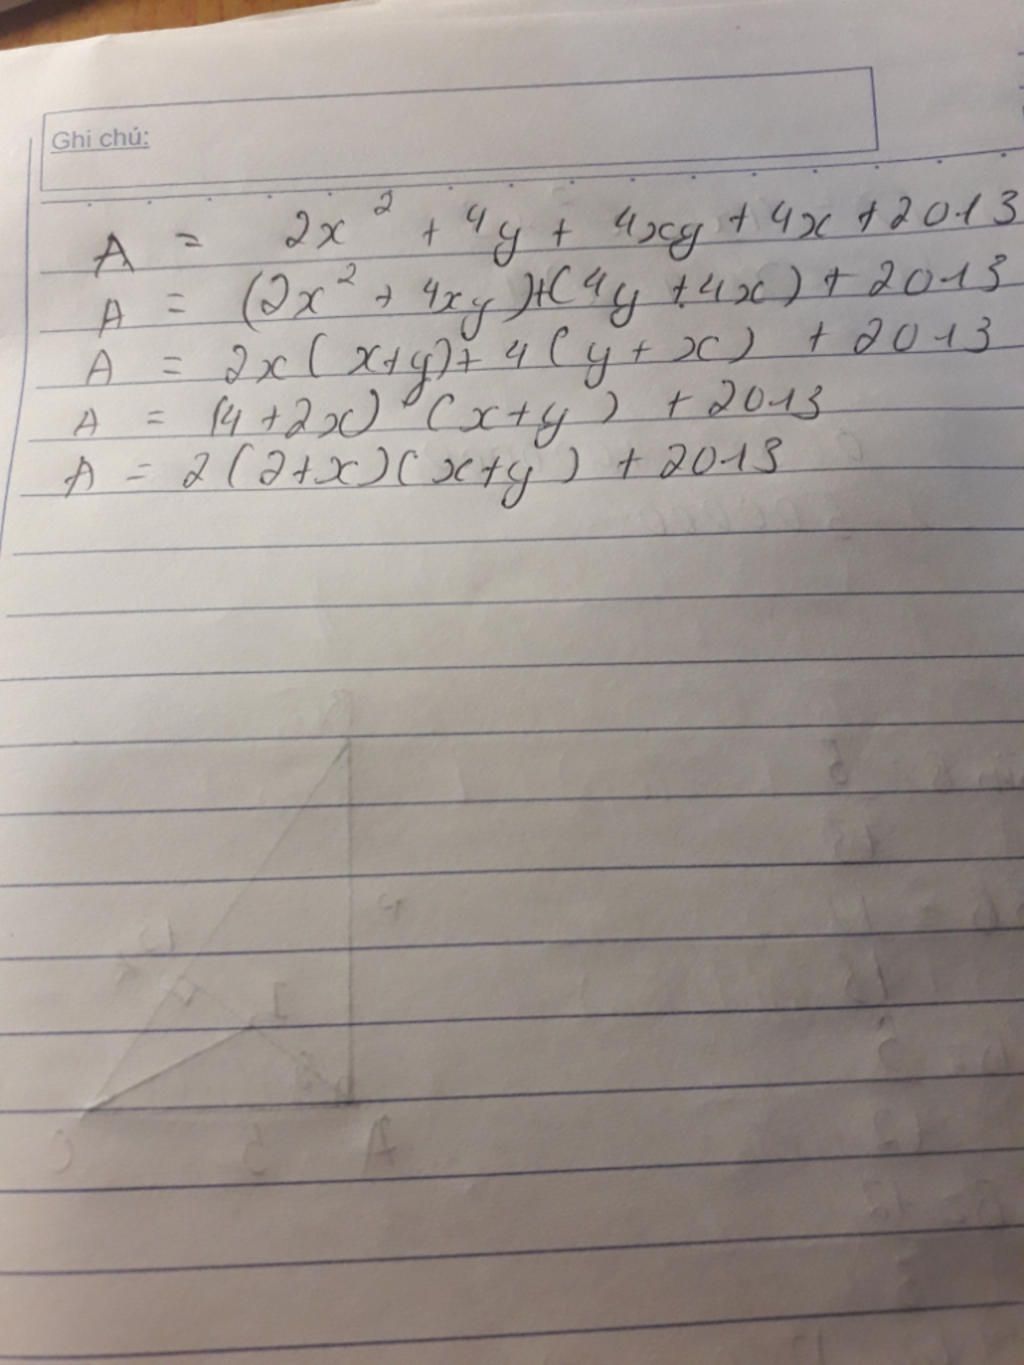 Ghi chú:
A = 2x² + 4y + 4xy + 4x + 2013
A = (2x² + 4xy) + (4y + 4x) + 2013
A = 2x(x+y) + 4(y+x) + 2013
A = (4+2x)(x+y) + 2013
A = 2(2+x)(x+y) + 2013
C 5 A